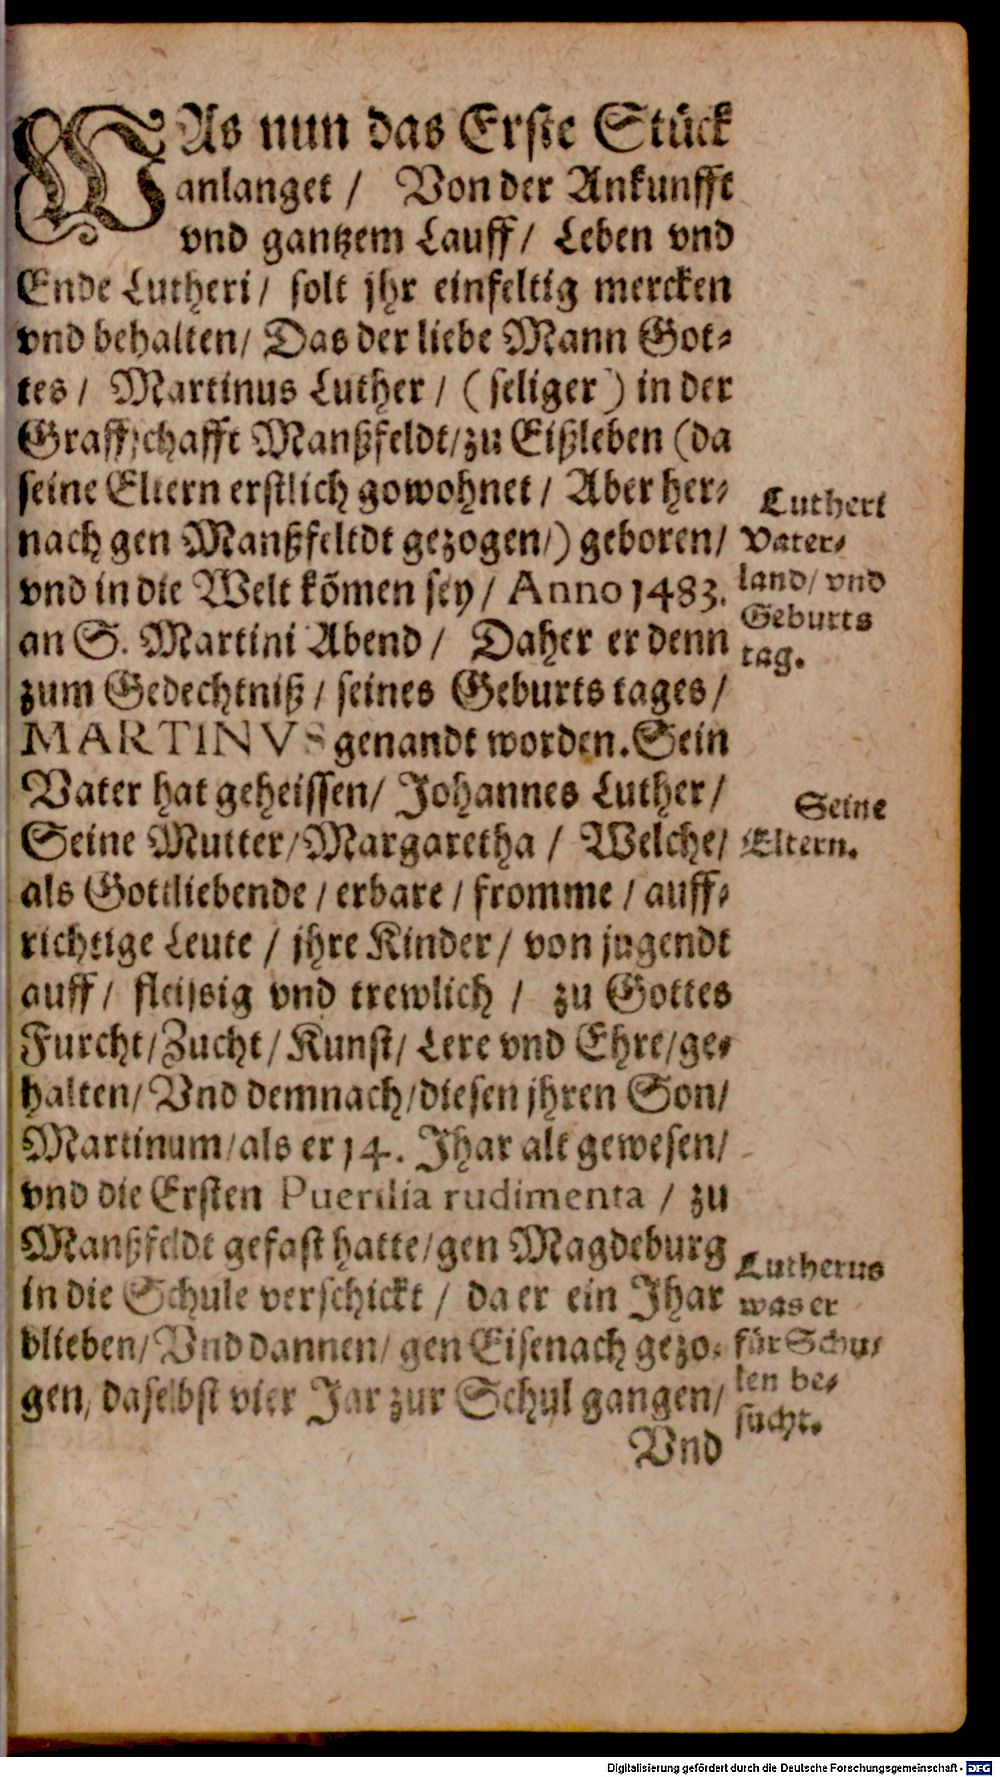 WAs nun das Erste Stück
anlanget / Von der Ankunfft
vnd gantzem Lauff / Leben vnd
Ende Lutheri / solt jhr einfeltig mercken
vnd behalten / Das der liebe Mann Got-
tes / Martinus Luther / (seliger) in der
Graffschafft Manßfeldt / zu Eißleben (da
seine Eltern erstlich gowohnet / Aber her-
nach gen Manßfeltdt gezogen /) geboren /
vnd in die Welt kõmen sey / Anno 1483.
an S. Martini Abend / Daher er denn
zum Gedechtniß / seines Geburts tages /
MARTINVS genandt worden. Sein
Vater hat geheissen / Johannes Luther /
Seine Mutter / Margaretha / Welche /
als Gottliebende / erbare / fromme / auff-
richtige Leute / jhre Kinder / von jugendt
auff / fleissig vnd trewlich / zu Gottes
Furcht / Zucht / Kunst / Lere vnd Ehre / ge-
halten / Vnd demnach / diesen jhren Son /
Martinum / als er 14. Jhar alt gewesen /
vnd die Ersten Puerilia rudimenta / zu
Manßfeldt gefast hatte / gen Magdeburg
in die Schule verschickt / da er ein Jhar
blieben / Vnd dannen / gen Eisenach gezo-
gen, daselbst vier Jar zur Schul gangen /
Vnd
Lutheri
Vater-
land / vnd
Geburts
tag.
Seine
Eltern.
Lutherus
was er
für Schu-
len be-
sucht.
Digitalisierung gefördert durch die Deutsche Forschungsgemeinschaft - DFG